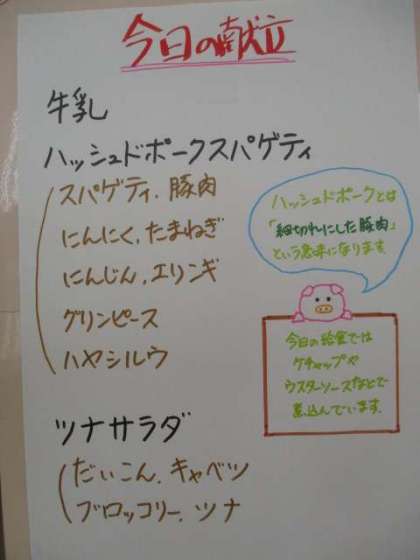 今日の献立
牛乳
ハッシュドポークスパゲティ
スパゲティ、豚肉
にんにく、たまねぎ
にんじん、エリンギ
グリンピース
ハヤシルウ
ハッシュドポークとは
「細切れにした豚肉」
という意味になります
今日の給食では
ケチャップや
ウスターソースなどで
煮込んでいます。
ツナサラダ
だいこん、キャベツ
ブロッコリー、ツナ